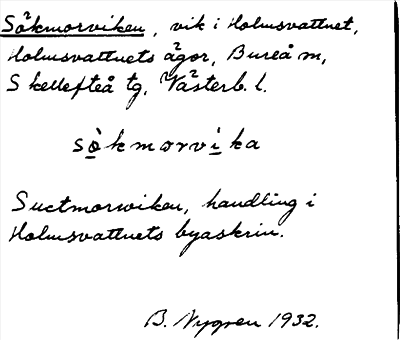 Sökmorviken, vik i Holmsvattnet,
Holmsvattnets ägor, Bureå m,
Skellefteå tg, Västerb. l.
sòkmorvika
Suctmorwiken, handling i
Holmsvattnets byaskrin.
B. Nygren 1932.